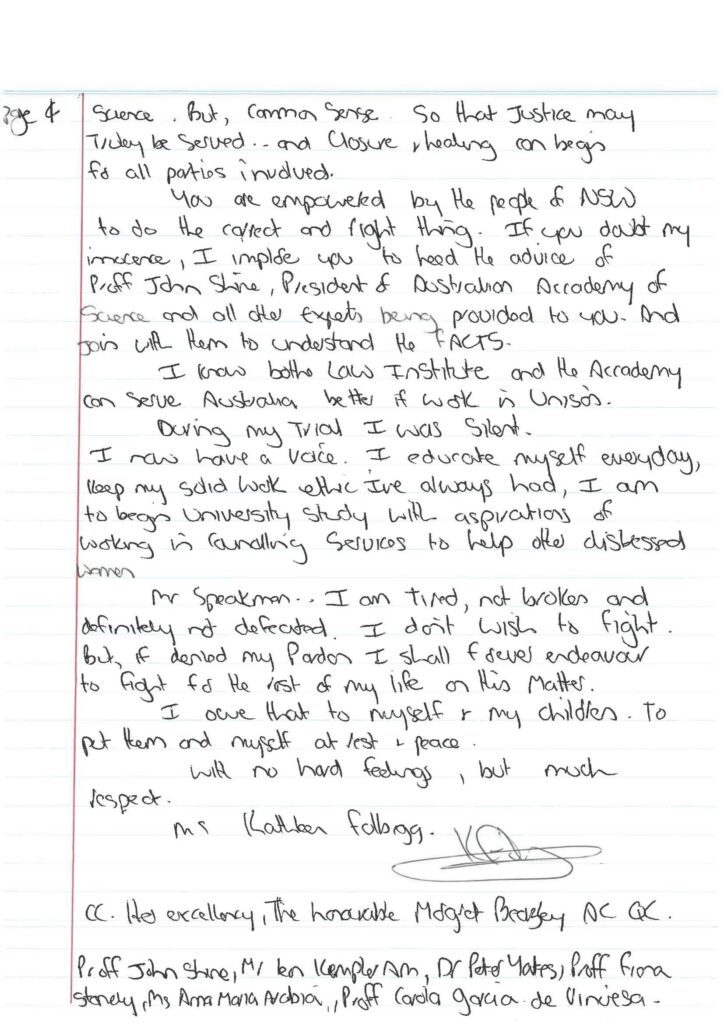 page 4 Science. But, Common Sense. So that Justice may
Truley be Served.. and Closure & healing can begin
for all parties involved.
You are empowered by the people of NSW
to do the correct and right thing. If you doubt my
innocence, I implore you to heed the advice of
Proff John Shine, President of Australian Accademy of
Science and all other Experts being provided to you. And
join with them to understand the FACTS.
I know bothe Law Institute and the Accademy
can serve Australia better if work in Unison.
During my Trial I was Silent.
I now have a voice. I educate myself everyday,
keep my solid work ethic Ive always had, I am
to begin University Study with aspirations of
working in Counslling Services to help other distressed
women
Mr Speakman.. I am Tired, not broken and
definitely not defeated. I don't wish to fight.
But, if denied my Pardon I shall forever endeavour
to fight for the rest of my life on this Matter.
I owe that to myself & my children. To
put them and myself at rest & peace.
with no hard feelings, but much
respect.
Ms Kathleen Folbigg.
CC. Her excellency, The honourable Margret Beazley AC QC.
Proff John Shine, Mr Ken Kempler Am, Dr Peter Yates, Proff Fiona
Stanely, Ms Anna Maria Arabia, Proff Carola Garcia de Vinuesa.